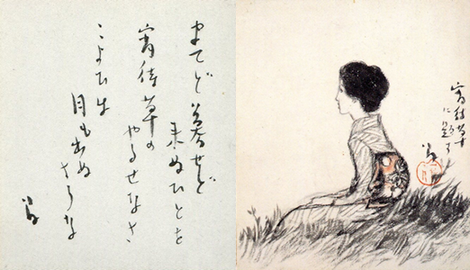 まてど暮せど
来ぬひとを
宵待草の
やるせなさ
こよひは
月も出ぬ
さうな
宵待草
に題す